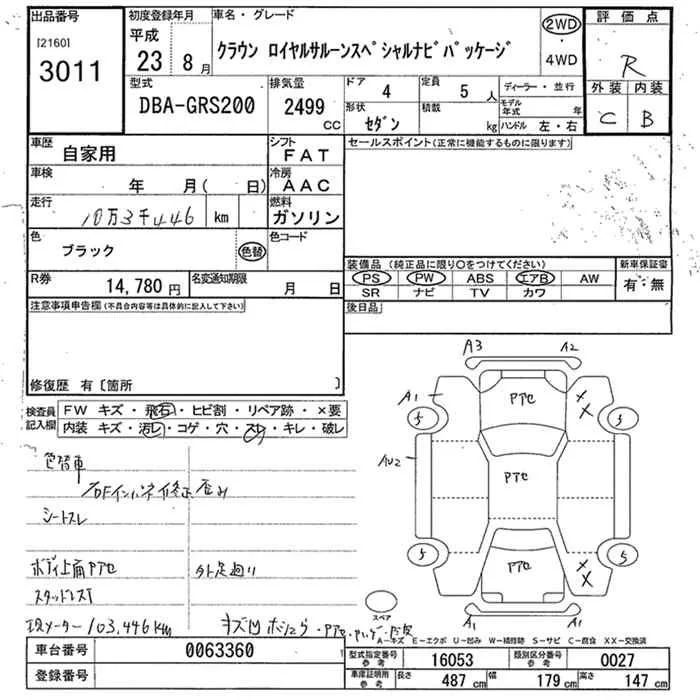 出品番号
[2160]
3011
初度登録年月
平成
23 8月
車名・グレード
クラウン ロイヤルサルーンスペシャルナビパッケージ
2WD
・
4WD
評価点
R
外装 内装
C B
型式
DBA-GRS200
排気量
2499
CC
ドア
4
定員
5人
形状
セダン
積載
kg
ディーラー・並行
モデル年式 年
ハンドル 左・右
車歴
自家用
シフト
FAT
車検
年 月( 日)
冷房
AAC
走行
10万3千446 km
燃料
ガソリン
色
ブラック
色替
色コード
R券
14,780円
名変通知期限
月 日
セールスポイント(正常に機能するものに限ります)
装備品(純正品に限り○をつけてください)
PS PW ABS エアB AW
SR ナビ TV カワ
新車保証書
有・無
後日品
注意事項申告欄(不具合内容等は具体的に記入して下さい)
修復歴 有〔箇所 〕
検査員
記入欄
FW キズ・飛石・ヒビ割・リペア跡・×要
内装 キズ・汚レ・コゲ・穴・スレ・キレ・破レ
色替車
シートスレ
ボディ上面Pアセ
外下廻り
スタッドレスT
現メーター103,446KM
A3 A2
A1
Pアセ
××
5 5
AU2
Pアセ
5 5
Pアセ
××
A1 A1
スペア
A-キズ E-エクボ U-凹み W-補修跡 S-サビ C-腐食 XX-交換済
車台番号
0063360
登録番号
型式指定番号
参考
16053
類別区分番号
参考
0027
車庫証明用
参考
長さ 487cm 幅 179cm 高さ 147cm